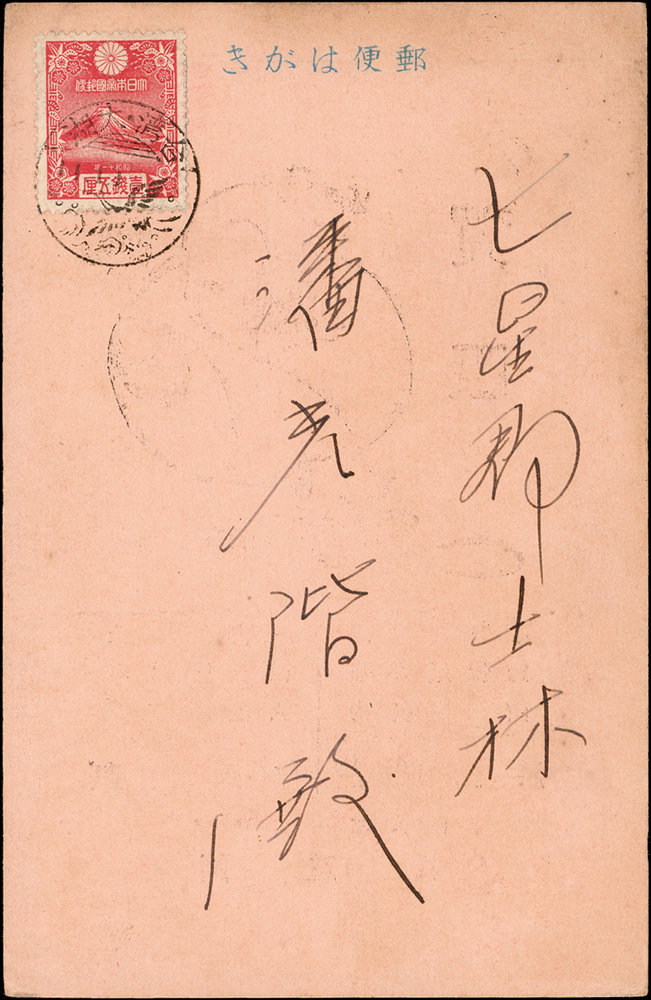 郵便はがき
大日本帝國郵便
昭和十一年
壹錢五厘
台灣
七星郡士林
潘光階殿